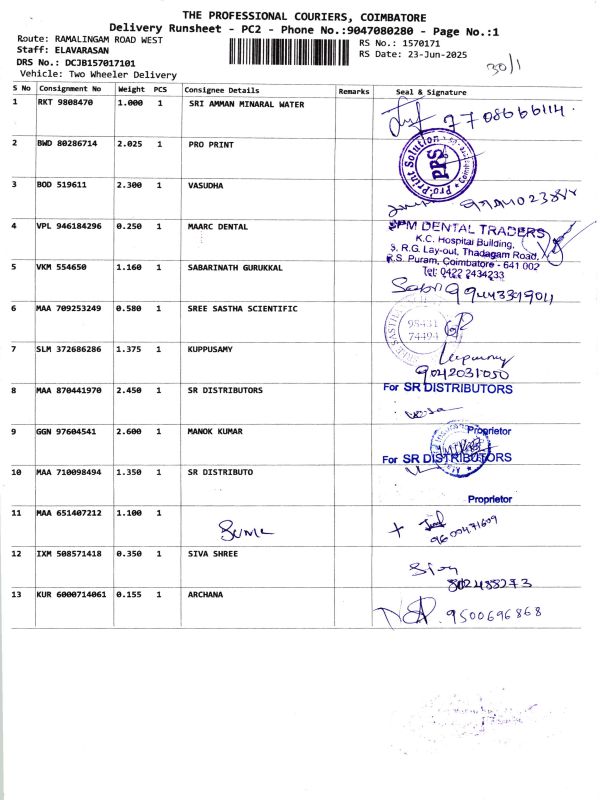 THE PROFESSIONAL COURIERS, COIMBATORE
Delivery Runsheet - PC2 - Phone No.:9047080280 - Page No.:1
Route: RAMALINGAM ROAD WEST
RS No.: 1570171
Staff: ELAVARASAN
RS Date: 23-Jun-2025
30/1
DRS No.: DCJB157017101
Vehicle: Two Wheeler Delivery
S No Consignment No Weight PCS Consignee Details Remarks Seal & Signature
1 RKT 9808470 1.000 1 SRI AMMAN MINARAL WATER
7708666114
2 BWD 80286714 2.025 1 PRO PRINT
Pro-Print Solution
PPS
3 BOD 519611 2.300 1 VASUDHA
4 VPL 946184296 0.250 1 MAARC DENTAL
SPM DENTAL TRADERS
K.C. Hospital Building,
S. R.G. Lay-out, Thadagam Road,
R.S. Puram, Coimbatore - 641 002
Tel: 0422 2434233
5 VKM 554650 1.160 1 SABARINATH GURUKKAL
6 MAA 709253249 0.580 1 SREE SASTHA SCIENTIFIC
SREE SASTHA
98431
74494
7 SLM 372686286 1.375 1 KUPPUSAMY
9042031050
8 MAA 870441970 2.450 1 SR DISTRIBUTORS
For SR DISTRIBUTORS
Proprietor
9 GGN 97604541 2.600 1 MANOK KUMAR
10 MAA 710098494 1.350 1 SR DISTRIBUTO
For SR DISTRIBUTORS
Proprietor
11 MAA 651407212 1.100 1
9600471609
12 IXM 508571418 0.350 1 SIVA SHREE
13 KUR 6000714061 0.155 1 ARCHANA
9500696868